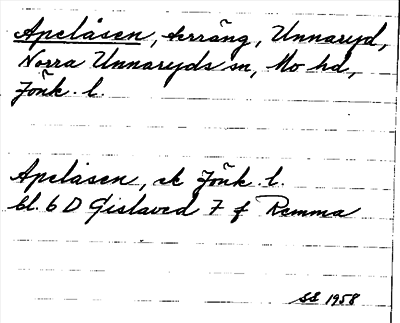 Apelåsen, terräng, Unnaryd,
Norra Unnaryds sn, Mo hd,
Jönk. l.
Apelåsen, ek Jönk. l.
bl. 6 D Gislaved 7 f Remma
SS 1958